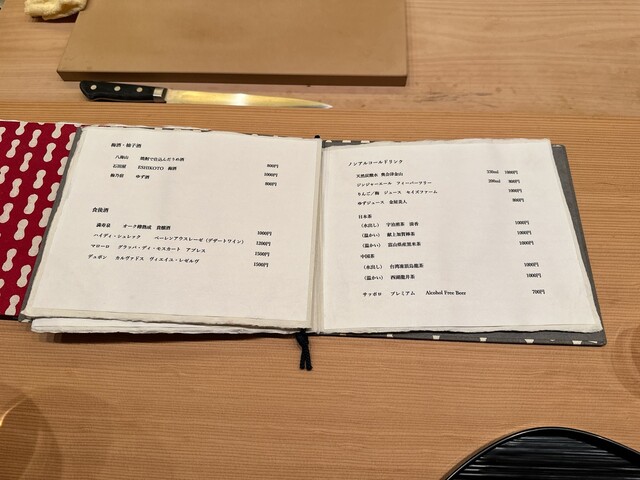 梅酒・柚子酒
八海山 焼酎で仕込んだうめ酒 800円
石田屋 ESHIKOTO 梅酒 1000円
梅乃宿 ゆず酒 800円
食後酒
満寿泉 オーク樽熟成 貴醸酒 1000円
ハイディ・シュレック ベーレンアウスレーゼ (デザートワイン) 1200円
マローロ グラッパ・ディ・モスカート アプレス 1500円
デュポン カルヴァドス ヴィエイユ・レゼルヴ 1500円
ノンアルコールドリンク
天然炭酸水 奥会津金山 330ml 1000円
ジンジャーエール フィーバーツリー 200ml 800円
りんご/梅 ジュース モイズファーム 1000円
ゆずジュース 金屋良人 800円
日本茶
(水出し) 宇治煎茶 清香 1000円
(温かい) 献上加賀棒茶 1000円
(温かい) 富山県産黒米茶 1000円
中国茶
(水出し) 台湾凍頂烏龍茶 1000円
(温かい) 西湖龍井茶 1000円
サッポロ プレミアム Alcohol Free Beer 700円